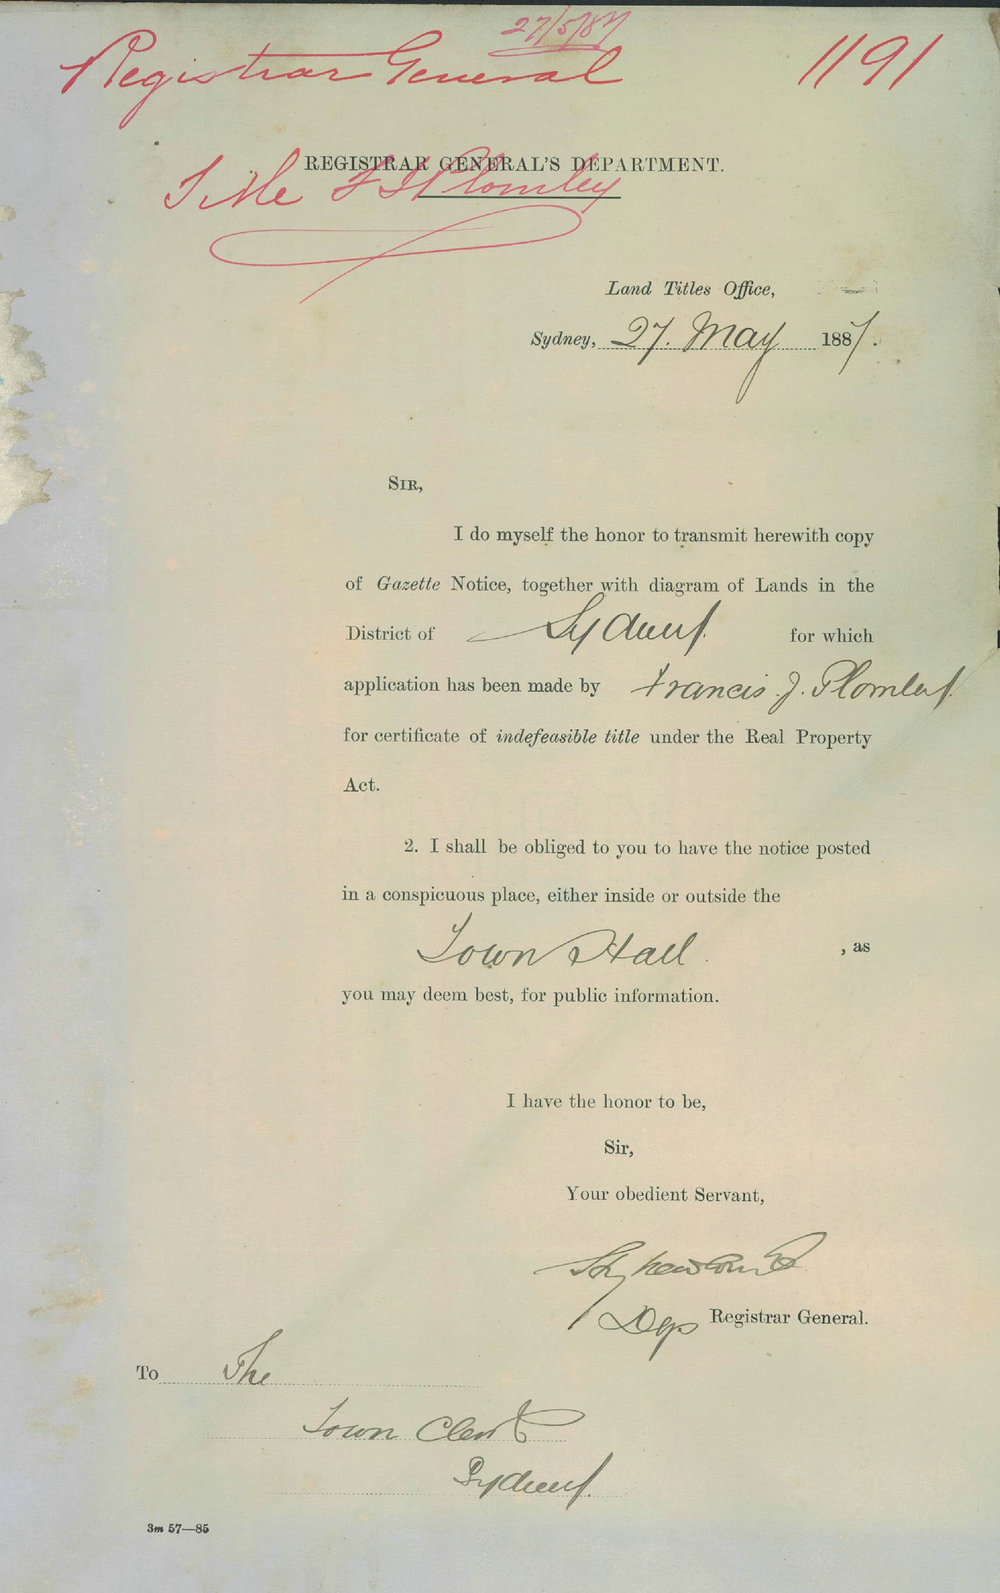 27/5/87
Registrar General 1191
REGISTRAR GENERAL'S DEPARTMENT.
Title F J Plomley
Land Titles Office,
Sydney, 27. May 1887.
SIR,
I do myself the honor to transmit herewith copy
of Gazette Notice, together with diagram of Lands in the
District of Sydney. for which
application has been made by Francis. J. Plomley.
for certificate of indefeasible title under the Real Property
Act.
2. I shall be obliged to you to have the notice posted
in a conspicuous place, either inside or outside the
Town Hall. , as
you may deem best, for public information.
I have the honor to be,
Sir,
Your obedient Servant,
Dep Registrar General.
To The
Town Clerk
Sydney.
3m 57—85